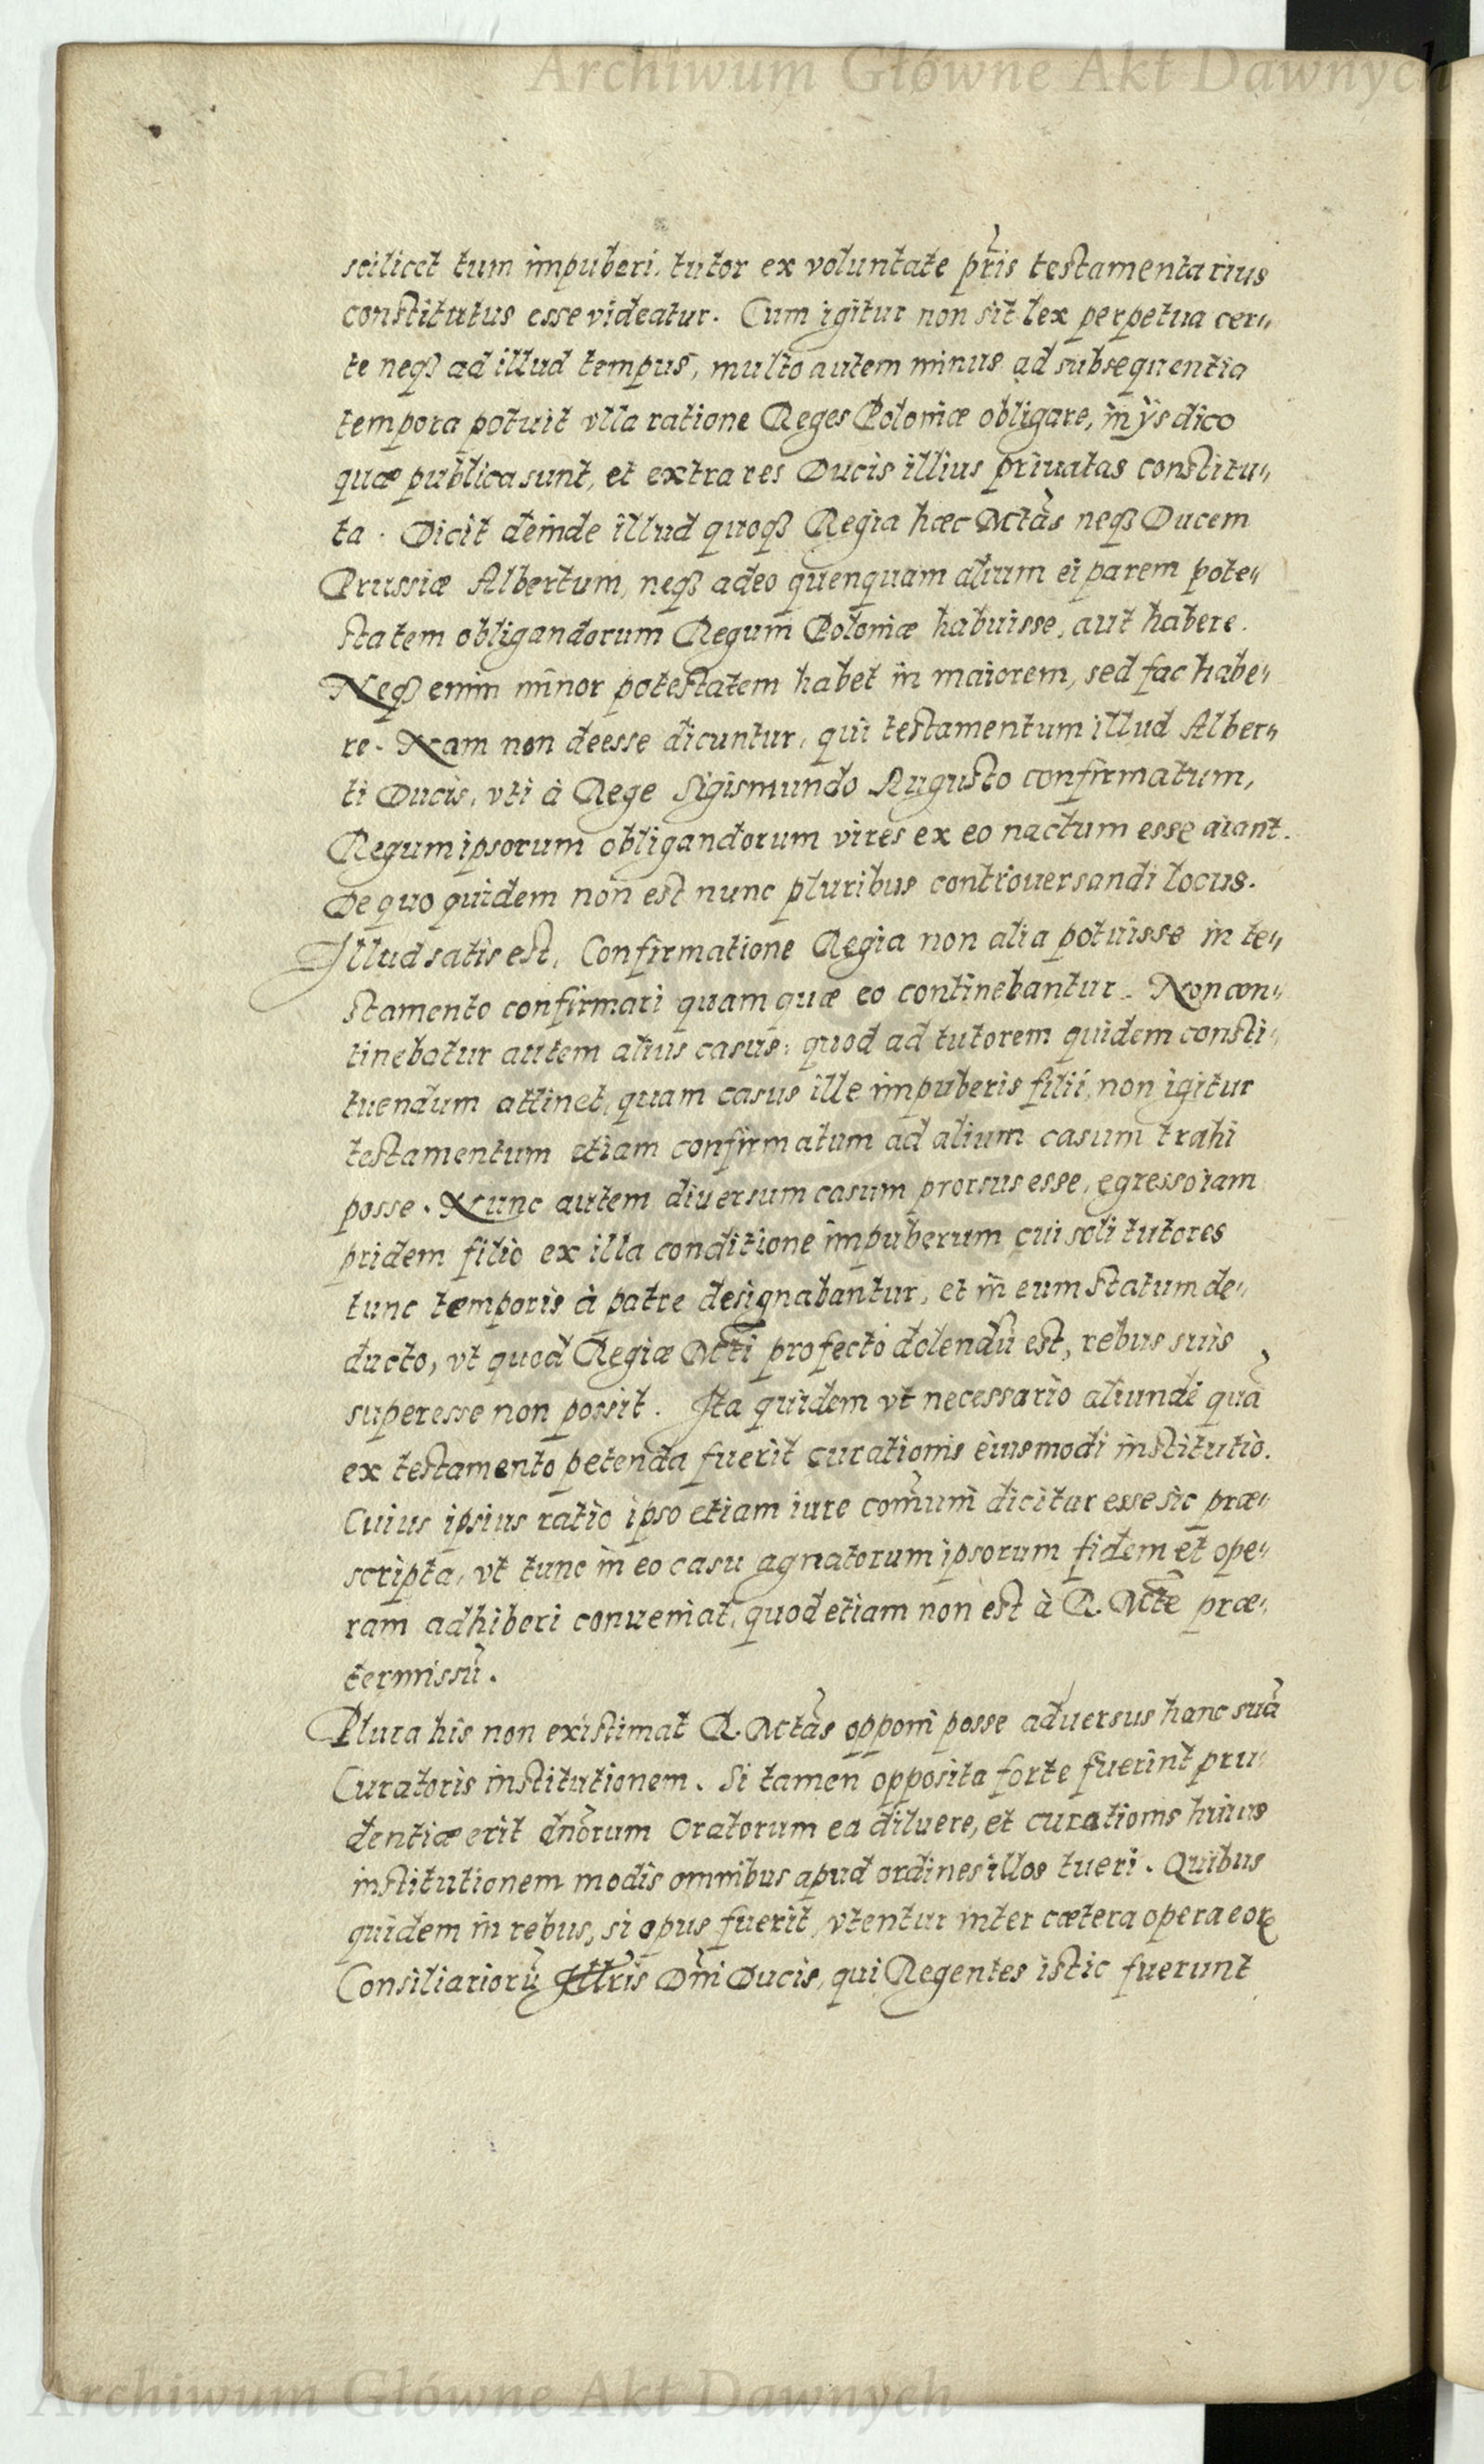 Archiwum Główne Akt Dawnych
scilicet tum impuberi, tutor ex voluntate pr̃is testamentarius
constitutus esse videatur. Cum igitur non sit lex perpetua cer„
te neqȝ ad illud tempus, multo autem minus ad subsequentia
tempora potuit vlla ratione Reges Poloniæ obligare, in ijs dico
quæ publica sunt, et extra res Ducis illius priuatas constitu„
ta. Dicit deinde illud quoqȝ Regia hæc Mtãs neqȝ Ducem
Prussiæ Albertum, neqȝ adeo quenquam alium ei parem pote„
statem obligandorum Regum Poloniæ habuisse, aut habere.
Neqȝ enim minor potestatem habet in maiorem, sed fac habe„
re. Nam non deesse dicuntur, qui testamentum illud Alber„
ti Ducis, vti à Rege Sigismundo Augusto confirmatum,
Regum ipsorum obligandorum vires ex eo nactum esse aiant.
De quo quidem non est nunc pluribus controuersandi locus.
Illud satis est, Confirmatione Regia non alia potuisse in te„
stamento confirmari quam quæ eo continebantur. Non con„
tinebatur autem alius casus, quod ad tutorem quidem consti„
tuendum attinet, quam casus ille impuberis filii, non igitur
testamentum etiam confirmatum ad alium casum trahi
posse. Nunc autem diuersum casum prorsus esse, egresso iam
pridem filio ex illa conditione impuberum cui soli tutores
tunc temporis à patre designabantur, et in eum statum de„
ducto, vt quod Regiæ Mtti profecto dolendũ est, rebus suis
superesse non possit. Ita quidem vt necessario aliunde quã
ex testamento petenda fuerit curationis eiusmodi institutio.
Cuius ipsius ratio ipso etiam iure com̃uni dicitur esse sic præ„
scripta, vt tunc in eo casu agnatorum ipsorum fidem et ope„
ram adhiberi conueniat, quod etiam non est à R. Mtte præ„
termissũ.
Plura his non existimat R. Mtãs opponi posse aduersus hanc suã
Curatoris institutionem. Si tamen opposita forte fuerint pru„
dentiæ erit dñorum Oratorum ea diluere, et curationis huius
institutionem modis omnibus apud ordines illos tueri. Quibus
quidem in rebus, si opus fuerit, vtentur inter cætera opera eorꝝ
Consiliariorũ Illr̃is Dñi Ducis, qui Regentes istic fuerunt
Archiwum Główne Akt Dawnych